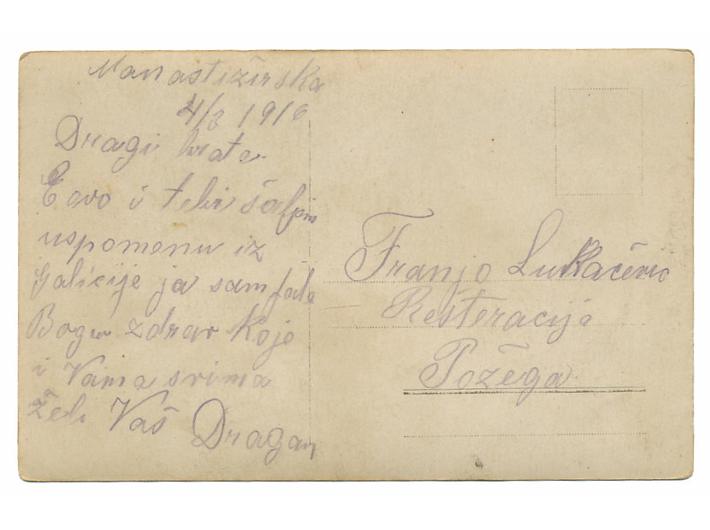 Manastižirska
4/8 1916
Dragi brate
Evo i tebi šaljem
uspomenu iz
Galicije ja sam fala
Bogu zdrav koje
i Vama svima
želi Vaš Dragan
Franjo Lukačević
Resteracija
Požega